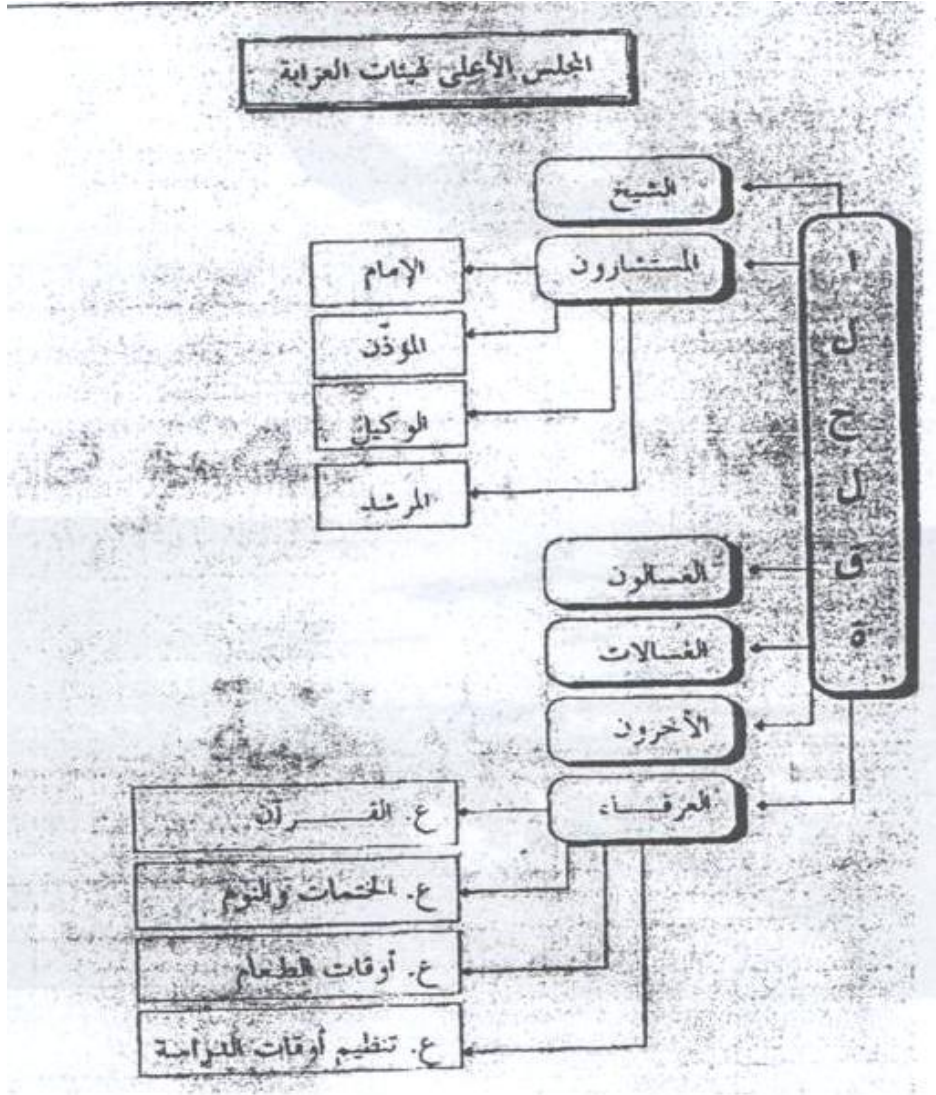 المجلس الأعلى لهيئات العزابة
الحلقة
الشيخ
المستشارون
الإمام
المؤذّن
الوكيل
المرشد
الغسالون
الغسالات
الآخرون
العرفـــاء
ع. القـــــرآن
ع. الختمات والنوم
ع. أوقات الطعام
ع. تنظيم أوقات الدراسة